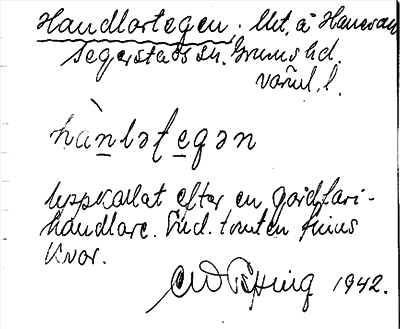 Handlartegen. Ut. å Hanevan
Segerstads sn. Grums hd.
Värml. l.
hànlategən
Uppkallat efter en gårdfari-
handlare. End. tomten finns
kvar.
1942.